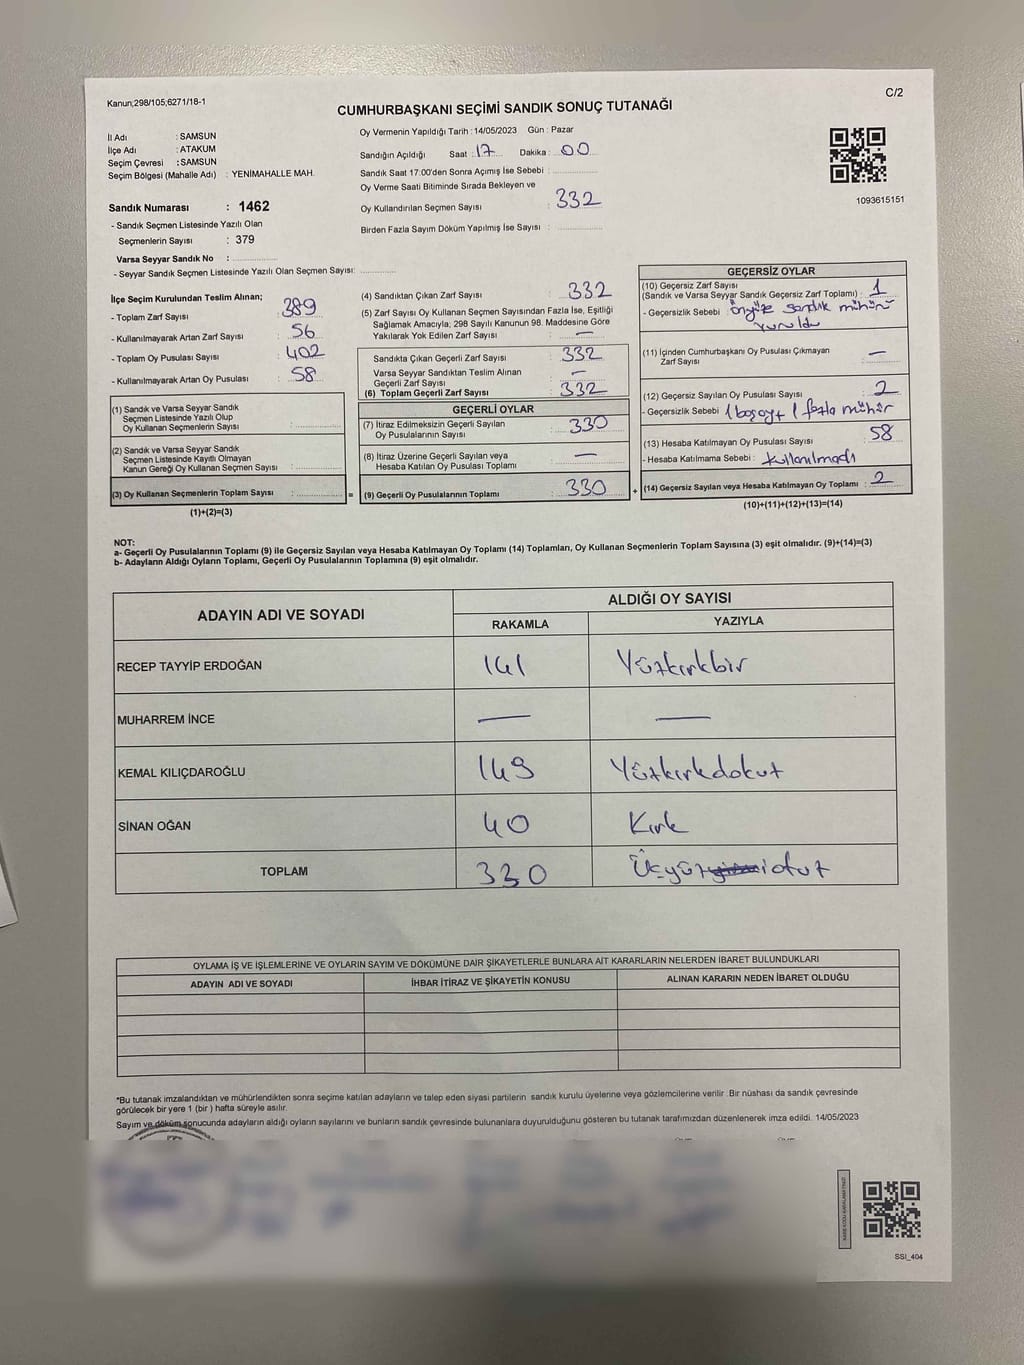 Kanun;298/105;6271/18-1
C/2
CUMHURBAŞKANI SEÇİMİ SANDIK SONUÇ TUTANAĞI
İl Adı : SAMSUN
İlçe Adı : ATAKUM
Seçim Çevresi : SAMSUN
Seçim Bölgesi (Mahalle Adı) : YENİMAHALLE MAH.
Sandık Numarası : 1462
- Sandık Seçmen Listesinde Yazılı Olan
Seçmenlerin Sayısı : 379
Varsa Seyyar Sandık No :
- Seyyar Sandık Seçmen Listesinde Yazılı Olan Seçmen Sayısı:
Oy Vermenin Yapıldığı Tarih : 14/05/2023 Gün : Pazar
Sandığın Açıldığı Saat : 17 Dakika : 00
Sandık Saat 17:00'den Sonra Açımış İse Sebebi :
Oy Verme Saati Bitiminde Sırada Bekleyen ve
Oy Kullandırılan Seçmen Sayısı : 332
Birden Fazla Sayım Döküm Yapılmış İse Sayısı :
1093615151
İlçe Seçim Kurulundan Teslim Alınan;
- Toplam Zarf Sayısı : 389
- Kullanılmayarak Artan Zarf Sayısı : 56
- Toplam Oy Pusulası Sayısı : 402
- Kullanılmayarak Artan Oy Pusulası : 58
(1) Sandık ve Varsa Seyyar Sandık
Seçmen Listesinde Yazılı Olup
Oy Kullanan Seçmenlerin Sayısı :
(2) Sandık ve Varsa Seyyar Sandık
Seçmen Listesinde Kayıtlı Olmayan
Kanun Gereği Oy Kullanan Seçmen Sayısı :
(3) Oy Kullanan Seçmenlerin Toplam Sayısı : =
(1)+(2)=(3)
(4) Sandıktan Çıkan Zarf Sayısı : 332
(5) Zarf Sayısı Oy Kullanan Seçmen Sayısından Fazla İse, Eşitliği
Sağlamak Amacıyla, 298 Sayılı Kanunun 98. Maddesine Göre
Yakılarak Yok Edilen Zarf Sayısı : —
Sandıkta Çıkan Geçerli Zarf Sayısı : 332
Varsa Seyyar Sandıktan Teslim Alınan
Geçerli Zarf Sayısı : —
(6) Toplam Geçerli Zarf Sayısı : 332
GEÇERLİ OYLAR
(7) İtiraz Edilmeksizin Geçerli Sayılan
Oy Pusulalarının Sayısı : 330
(8) İtiraz Üzerine Geçerli Sayılan veya
Hesaba Katılan Oy Pusulası Toplamı : —
(9) Geçerli Oy Pusulalarının Toplamı : 330 +
GEÇERSİZ OYLAR
(10) Geçersiz Zarf Sayısı
(Sandık ve Varsa Seyyar Sandık Geçersiz Zarf Toplamı) : 1
- Geçersizlik Sebebi : sandık mührü
vuruldu
(11) İçinden Cumhurbaşkanı Oy Pusulası Çıkmayan
Zarf Sayısı : —
(12) Geçersiz Sayılan Oy Pusulası Sayısı : 2
- Geçersizlik Sebebi 1 boş oy + 1 fazla mühür
(13) Hesaba Katılmayan Oy Pusulası Sayısı : 58
- Hesaba Katılmama Sebebi : kullanılmadı
(14) Geçersiz Sayılan veya Hesaba Katılmayan Oy Toplamı : 2
(10)+(11)+(12)+(13)=(14)
NOT:
a- Geçerli Oy Pusulalarının Toplamı (9) ile Geçersiz Sayılan veya Hesaba Katılmayan Oy Toplamı (14) Toplamları, Oy Kullanan Seçmenlerin Toplam Sayısına (3) eşit olmalıdır. (9)+(14)=(3)
b- Adayların Aldığı Oyların Toplamı, Geçerli Oy Pusulalarının Toplamına (9) eşit olmalıdır.
ADAYIN ADI VE SOYADI ALDIĞI OY SAYISI
RAKAMLA YAZIYLA
RECEP TAYYİP ERDOĞAN 141 Yüzkırkbir
MUHARREM İNCE — —
KEMAL KILIÇDAROĞLU 149 Yüzkırkdokuz
SİNAN OĞAN 40 Kırk
TOPLAM 330 Üçyüz otuz
OYLAMA İŞ VE İŞLEMLERİNE VE OYLARIN SAYIM VE DÖKÜMÜNE DAİR ŞİKAYETLERLE BUNLARA AİT KARARLARIN NELERDEN İBARET BULUNDUKLARI
ADAYIN ADI VE SOYADI İHBAR İTİRAZ VE ŞİKAYETİN KONUSU ALINAN KARARIN NEDEN İBARET OLDUĞU
*Bu tutanak imzalandıktan ve mühürlendikten sonra seçime katılan adayların ve talep eden siyasi partilerin sandık kurulu üyelerine veya gözlemcilerine verilir. Bir nüshası da sandık çevresinde
görülecek bir yere 1 (bir ) hafta süreyle asılır.
Sayım ve döküm sonucunda adayların aldığı oyların sayılarını ve bunların sandık çevresinde bulunanlara duyurulduğunu gösteren bu tutanak tarafımızdan düzenlenerek imza edildi. 14/05/2023
SSI_404